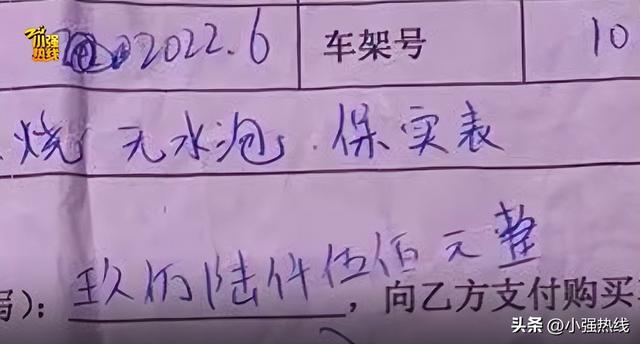 小强热线
2022.6 车架号 10
烧 无水泡 保实表
玖仟陆仟伍佰元整,向乙方支付购买
头条 @小强热线